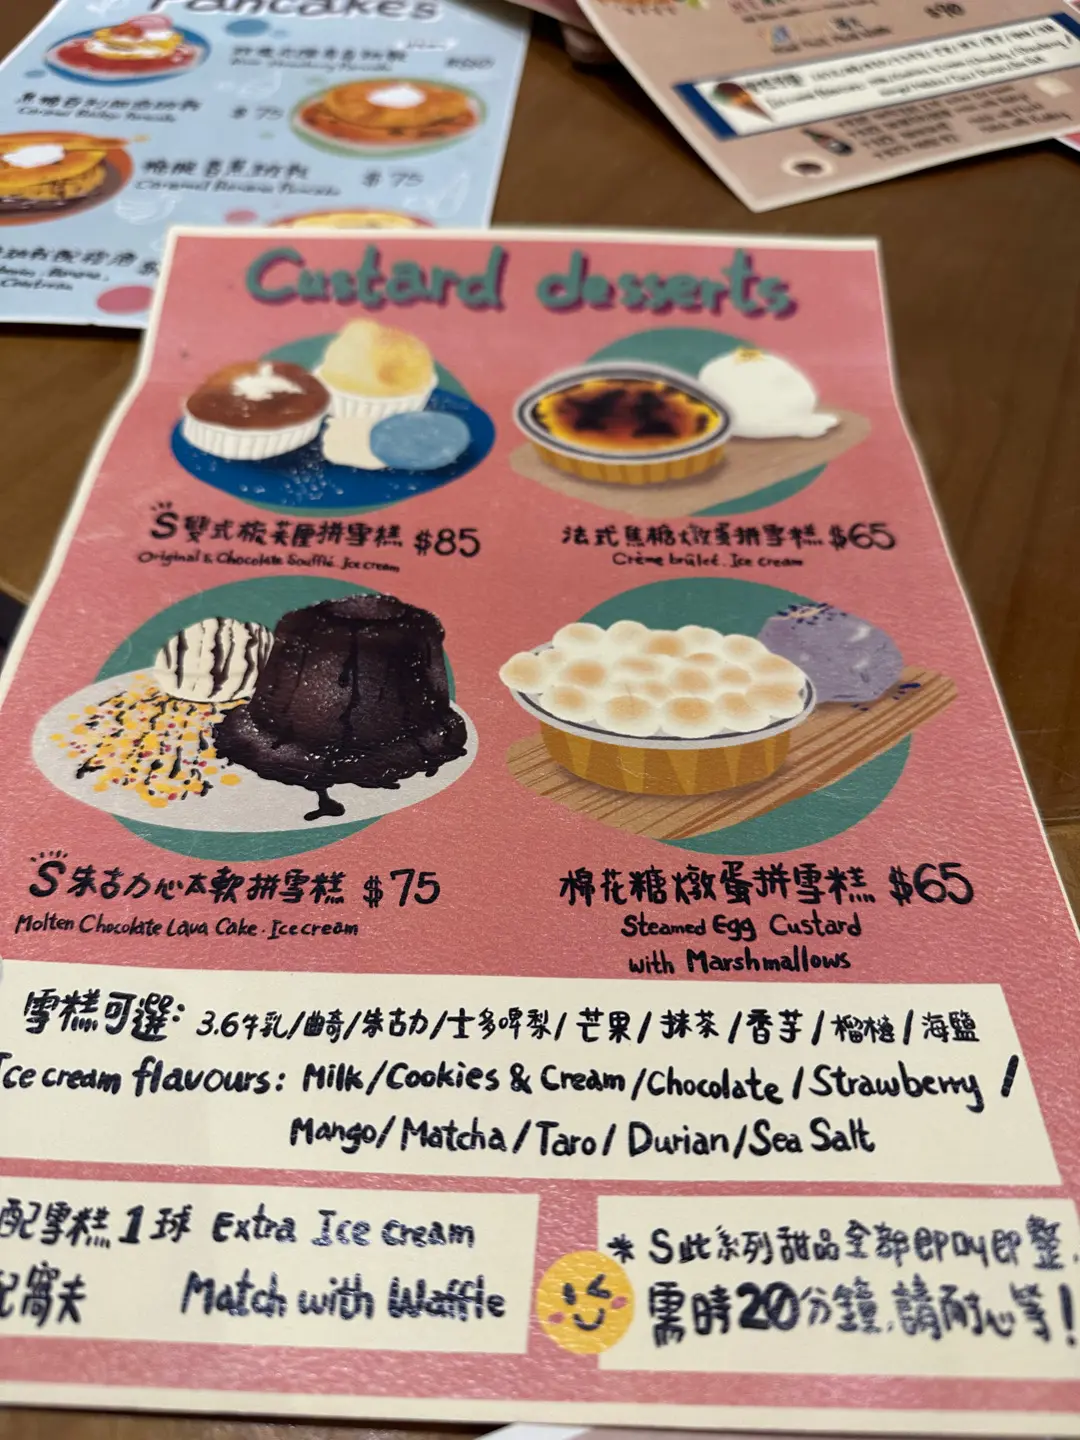 Pancakes
$75
Caramel Banana Pancake
$75
$90
Custard desserts
S雙式梳芙厘拼雪糕 $85
Original & Chocolate Soufflé. Ice cream
法式焦糖燉蛋拼雪糕 $65
Crème brûleé. Ice cream
S朱古力心太軟拼雪糕 $75
Molten Chocolate Lava Cake. Ice cream
棉花糖燉蛋拼雪糕 $65
Steamed Egg Custard
with Marshmallows
雪糕可選: 3.6牛乳/曲奇/朱古力/士多啤梨/芒果/抹茶/香芋/榴槤/海鹽
Ice cream flavours: Milk/Cookies & Cream/Chocolate/Strawberry/
Mango/Matcha/Taro/Durian/Sea Salt
配雪糕1球 Extra Ice cream
配窩夫 Match with Waffle
* S此系列甜品全部即叫即整,
需時20分鐘,請耐心等!